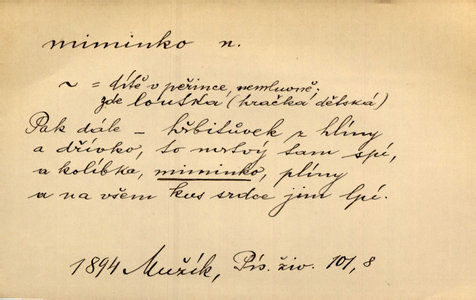 miminko n.
~ = dítě v peřince, nemluvně;
zde louska (hračka dětská)
Pak dále – hřbitůvek z hlíny
a dřívko, to mrtvý tam spí,
a kolíbka, miminko, plíny
a na všem kus srdce jim lpí.
1894 Mužík, Pís. živ. 101, 8